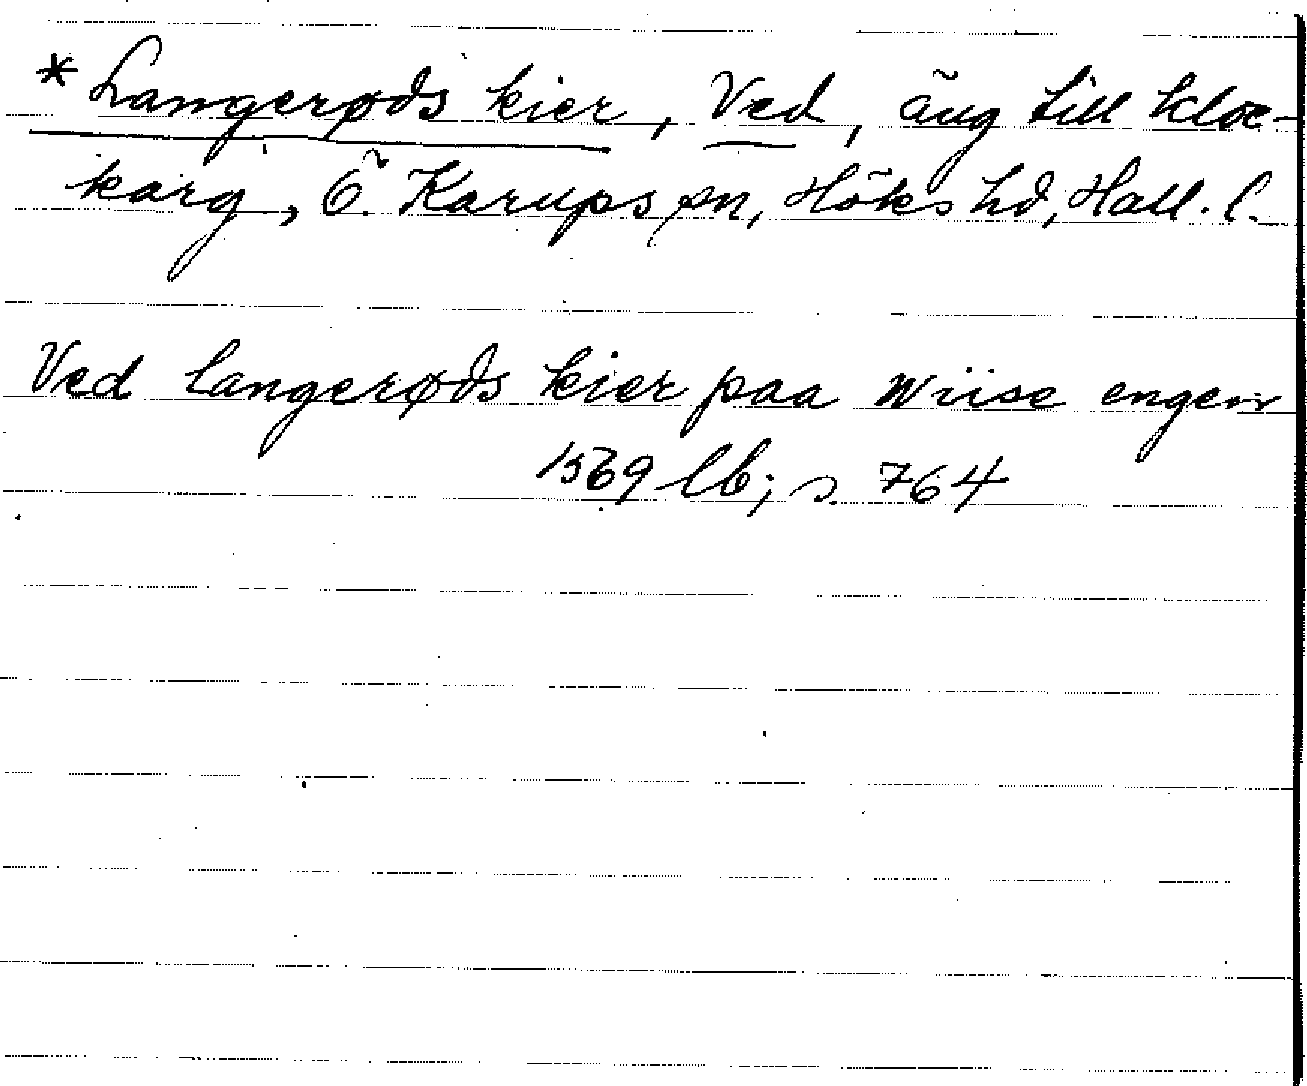 * Langerøds kier, Ved, äng till kloc-
karg, Ö. Karups sn, Höks hd, Hall. l.
Ved langerøds kier paa wiise engen
1569 lb; s. 764